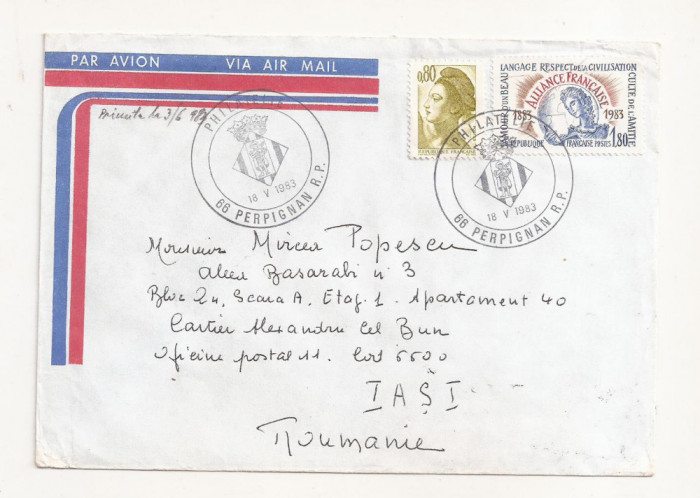 PAR AVION VIA AIR MAIL
la 3/6 983
PHILATELIE
18 V 1983
66 PERPIGNAN R.P.
0,80
REPUBLIQUE FRANCAISE
AMOUR D'UN BEAU LANGAGE RESPECT DE LA CIVILISATION CULTE DE L'AMITIÉ
ALLIANCE FRANÇAISE
1883 1983
1,80
REPUBLIQUE FRANÇAISE POSTES
PHILATELIE
18 V 1983
66 PERPIGNAN R.P.
Monsieur Mircea Popescu
aleea Basarabi n° 3
Bloc 2u, Scara A. Etaj. 1. Apartament 40
Cartier Alexandru Cel Bun
Oficine postal 11. Cod 6600
IAŞI
Roumanie